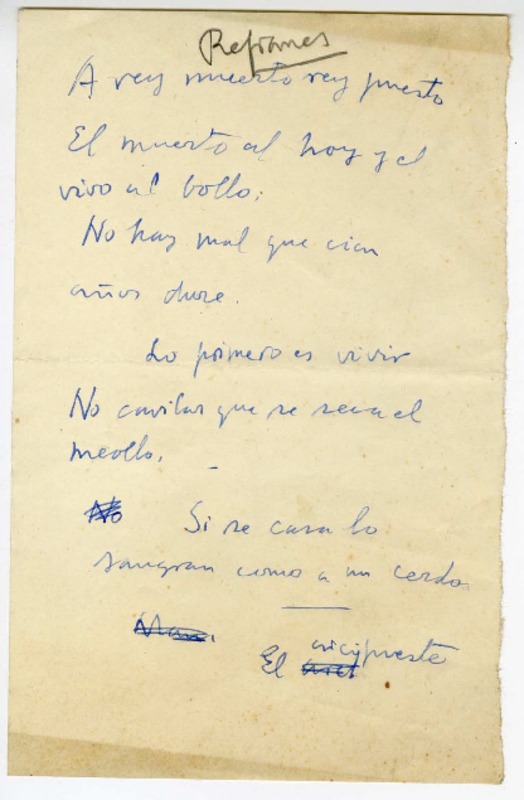 Refranes
A rey muerto rey puesto
El muerto al hoy y el
vivo al bollo;
No hay mal que cien
años dure.
Lo primero es vivir
No cavilar que se seca el
meollo.
No Si se casa lo
sangran como a un cerdo
El arcipreste